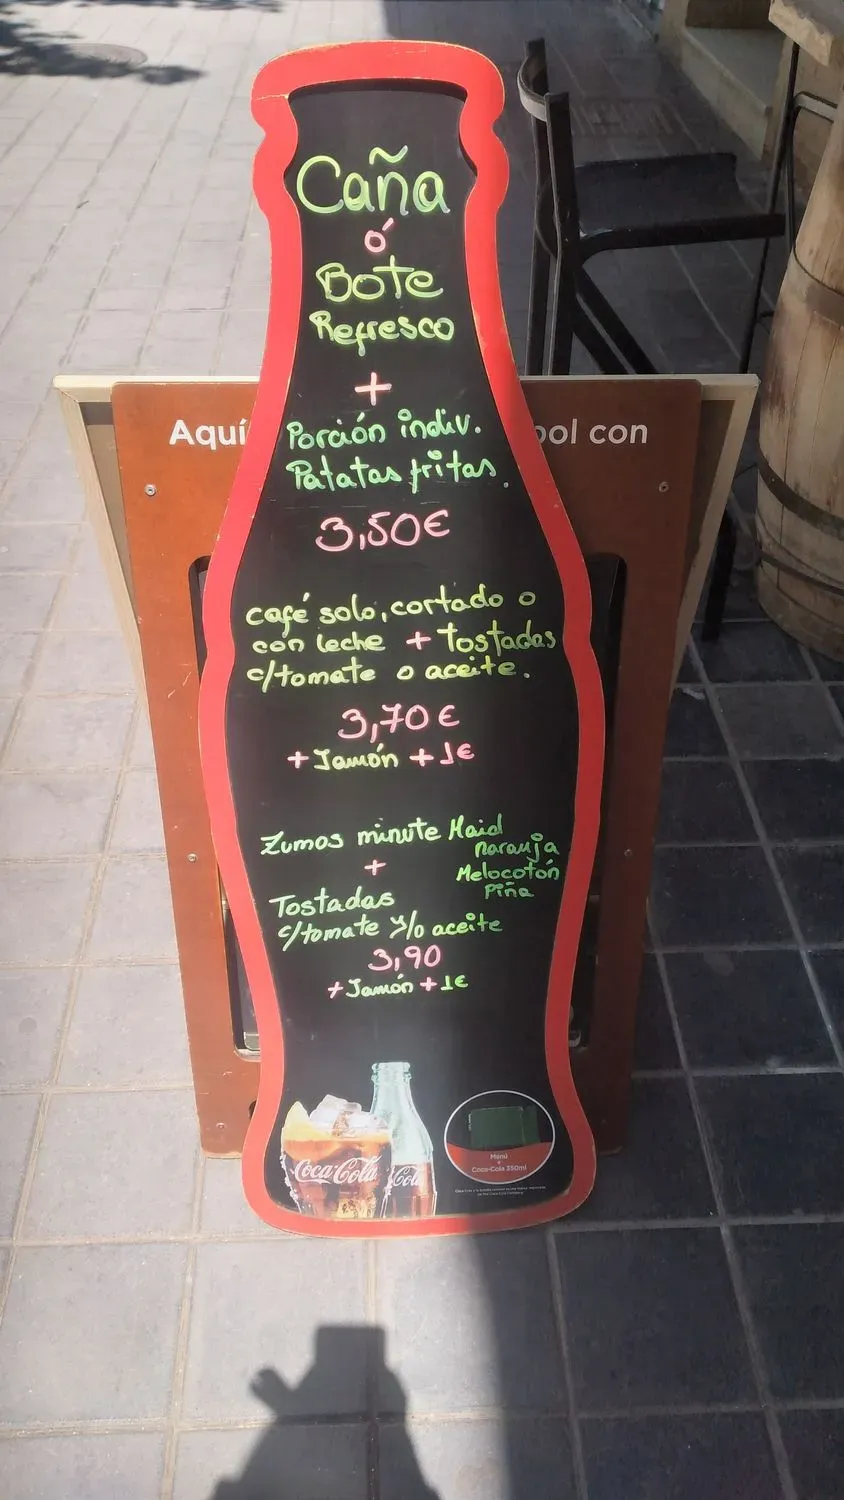 Caña
ó
Bote
Refresco
+
Aquí
Porción indiv.
ool con
Patatas fritas.
3,50€
café solo, cortado o
con leche + tostadas
c/tomate o aceite.
3,70€
+ Jamón + 1€
Zumos minute Maid
naranja
+
Melocotón
Piña
Tostadas
c/tomate y/o aceite
3,90
+ Jamón + 1€
Coca-Cola
Coca-Cola
Menú
+
Coca-Cola 350ml